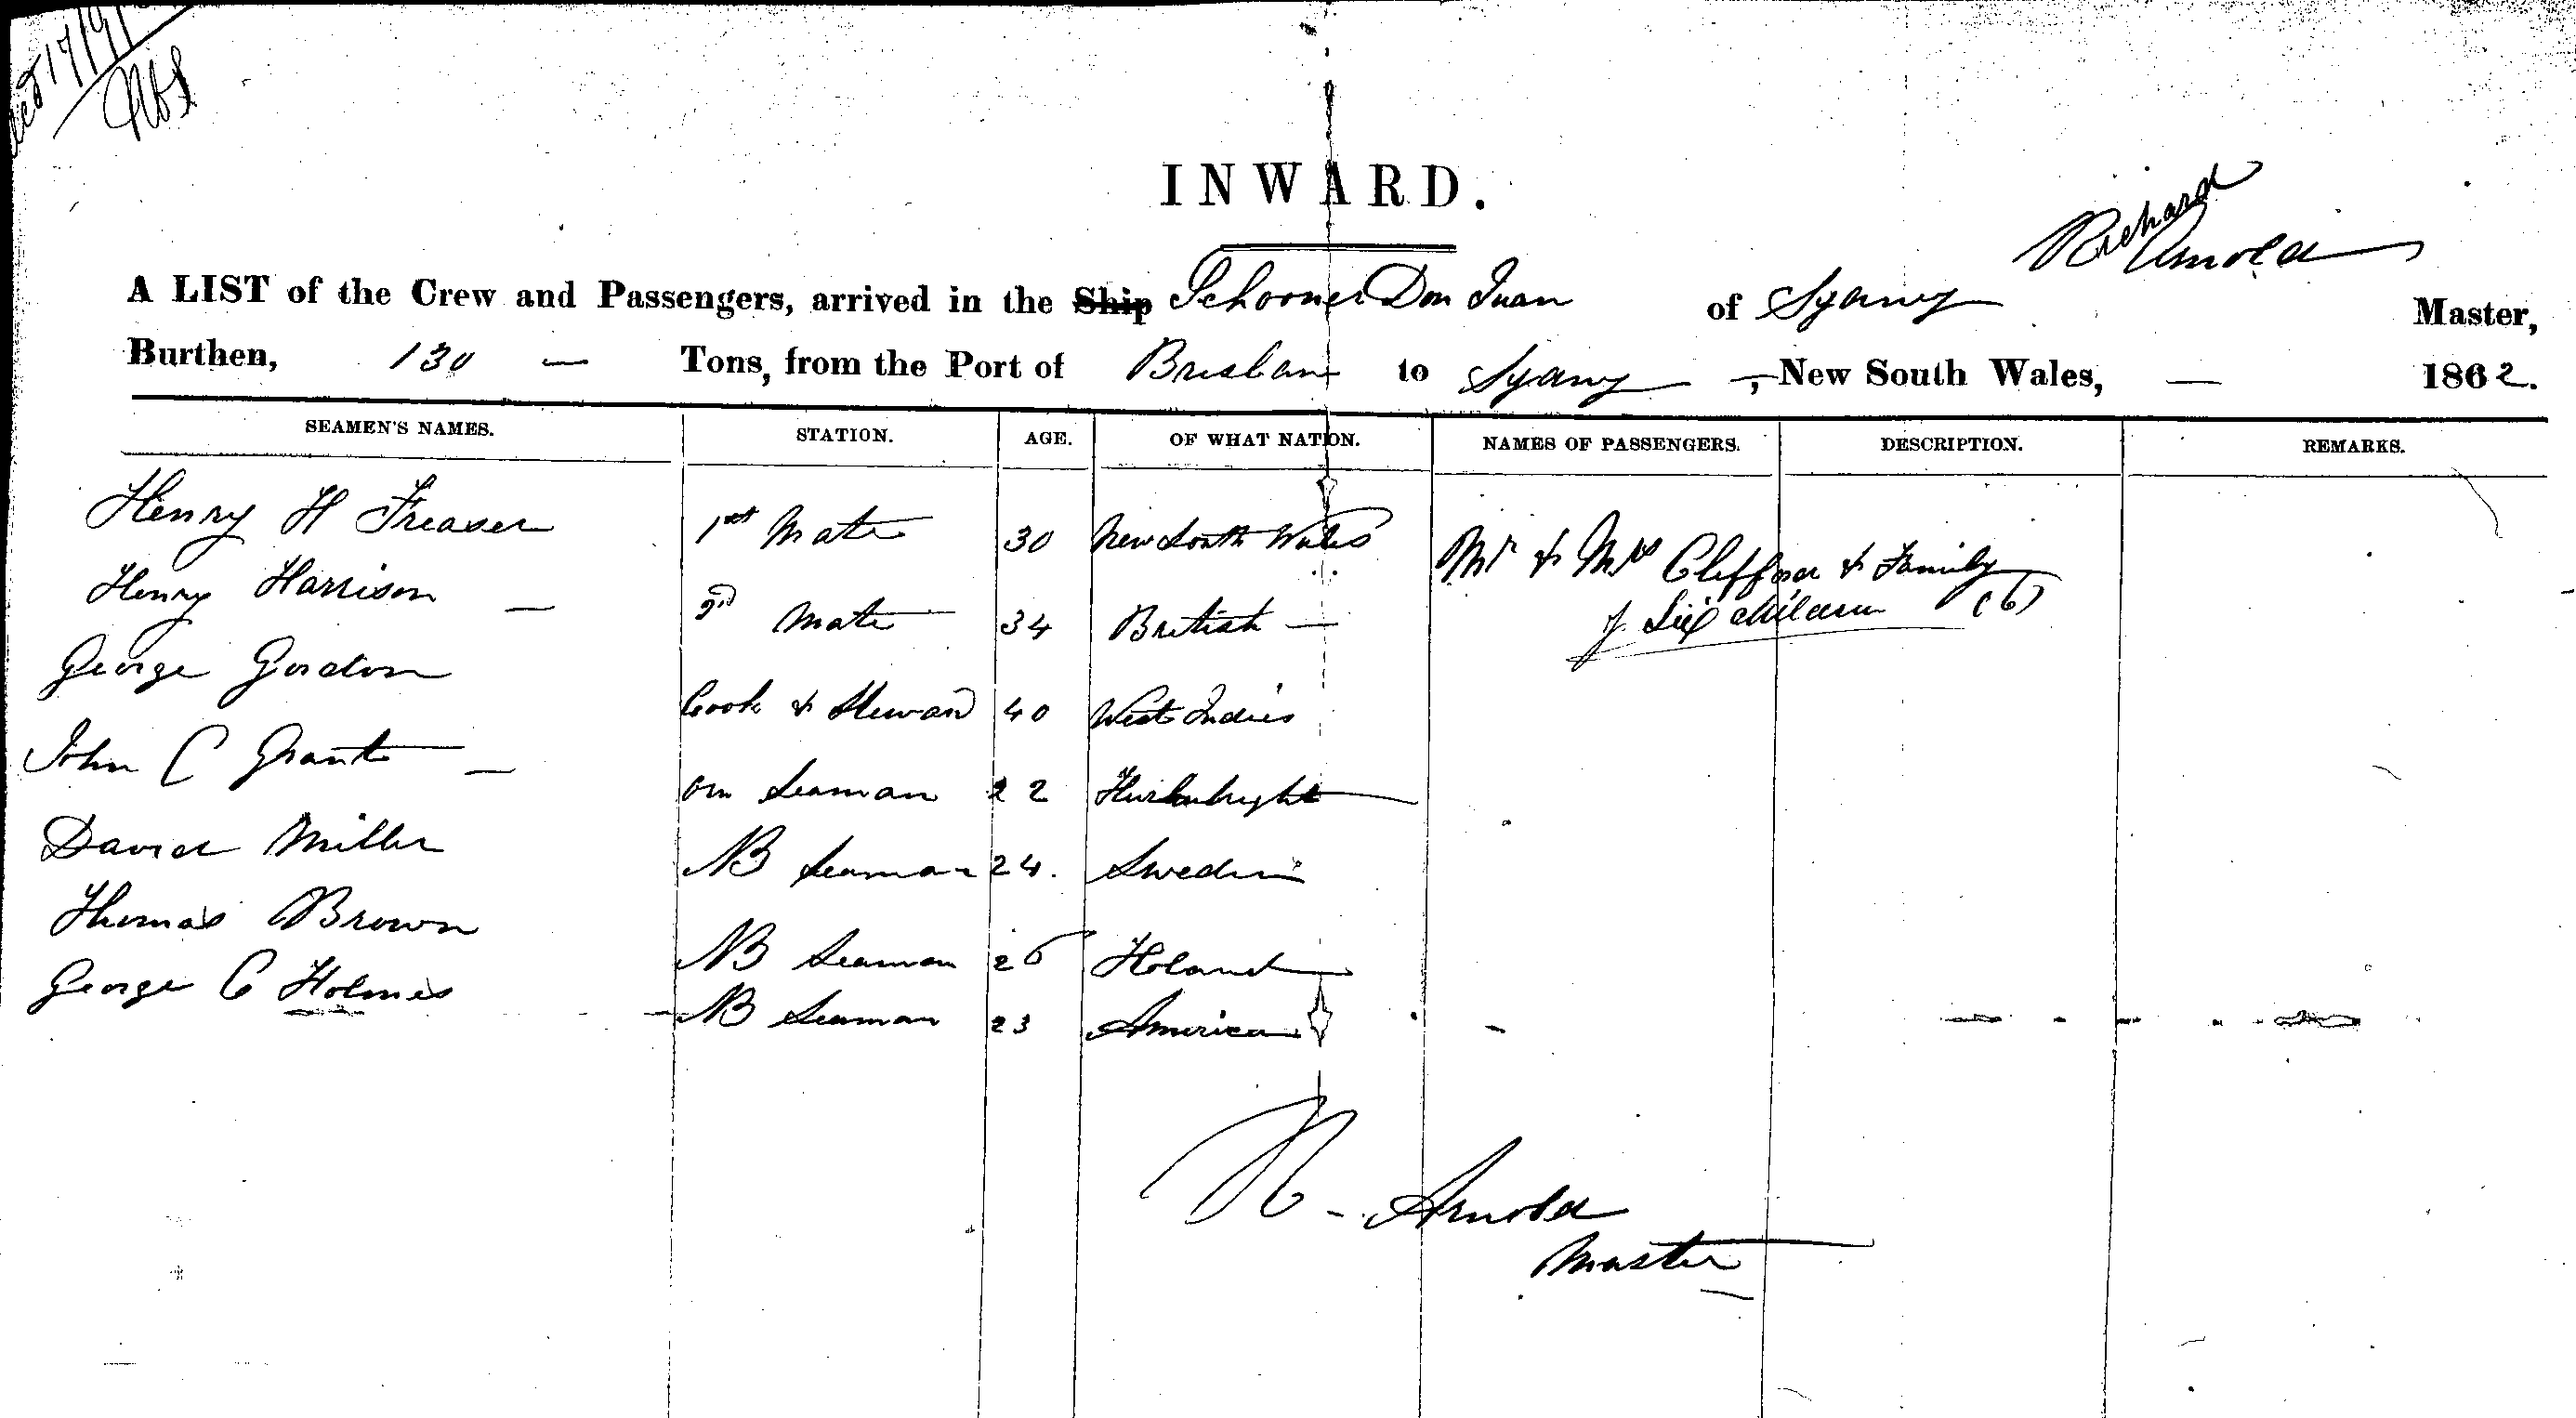 INWARD.
Richard
Arnold
A LIST of the Crew and Passengers, arrived in the Ship Schooner Don Juan of Sydney Master,
Burthen, 130 — Tons, from the Port of Brisbane to Sydney —, New South Wales, — 1862.
SEAMEN'S NAMES. STATION. AGE. OF WHAT NATION. NAMES OF PASSENGERS. DESCRIPTION. REMARKS.
Henry H Freaser 1st Mate 30 New South Wales Mr & Mrs & Family
Henry Harrison — 2nd Mate 34 British — of Six children (6)
George Gordon Cook & Steward 40 West Indies
John C Grant — Seaman 22
David Miller AB Seaman 24. Sweden
Thomas Brown AB Seaman 26 Holand
George C Holmes AB Seaman 23 America
R - Arnold
Master